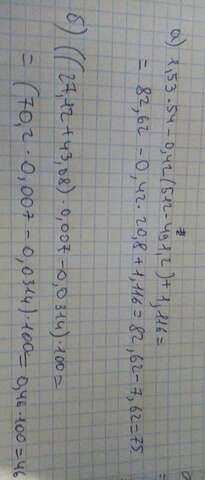 а) 1,53·54-0,42(512-491,2)+1,116=
= 82,62-0,42·20,8+1,116=82,62-7,62=75
б) ((27,12+43,08)·0,007-0,0314)·100=
= (70,2·0,007-0,0314)·100=0,46·100=46